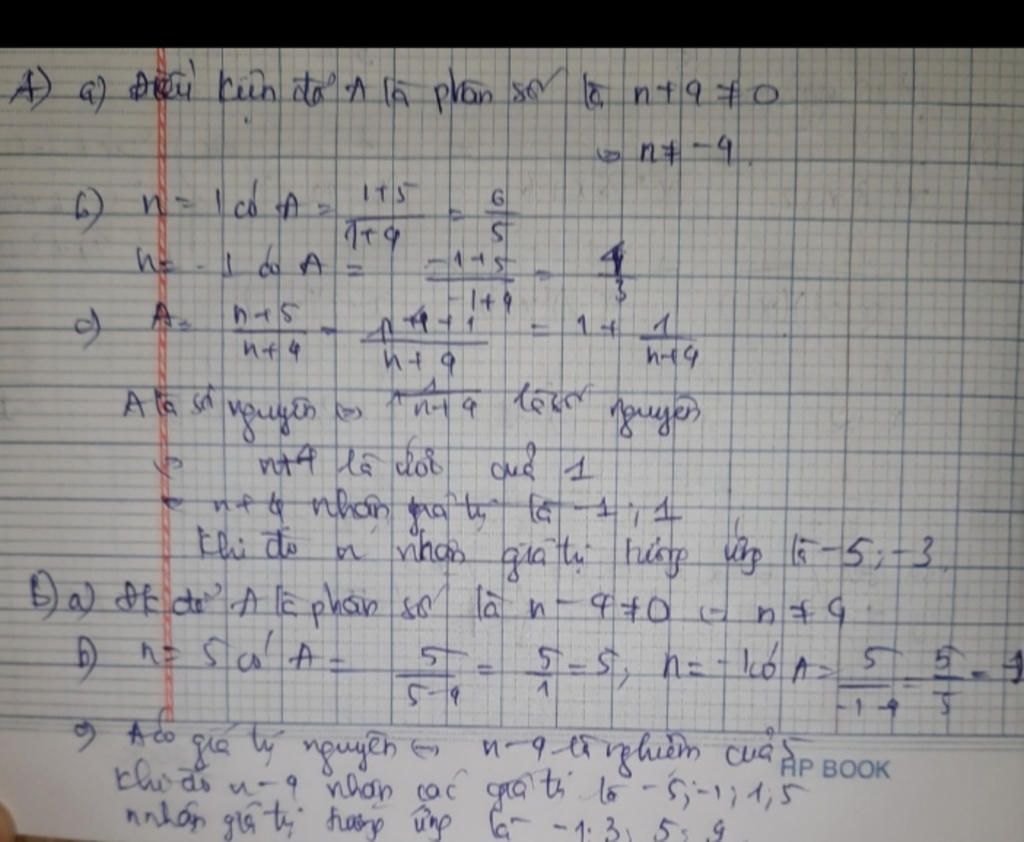 A) a) Điều kiện để A là phân số là n+4 ≠ 0
⇔ n ≠ -4.
b) n = 1 có A = \frac{1+5}{1+4} = \frac{6}{5}
n = -1 có A = \frac{-1+5}{-1+4} = \frac{4}{3}
c) A = \frac{n+5}{n+4} = \frac{n+4+1}{n+4} = 1 + \frac{1}{n+4}
A là số nguyên ⇔ \frac{1}{n+4} là số nguyên
⇔ n+4 là ước của 1
⇔ n+4 nhận giá trị là -1; 1
Khi đó n nhận giá trị tương ứng là -5; -3.
B) a) ĐK để A là phân số là n-4 ≠ 0 ⇔ n ≠ 4.
b) n = 5 có A = \frac{5}{5-4} = \frac{5}{1} = 5; n = -1 có A = \frac{5}{-1-4} = \frac{5}{5} = 1
c) A có giá trị nguyên ⇔ n-4 là của 5
Khi đó n-4 nhận các giá trị là -5; -1; 1; 5
n nhận giá trị tương ứng là -1; 3; 5; 9
HP BOOK